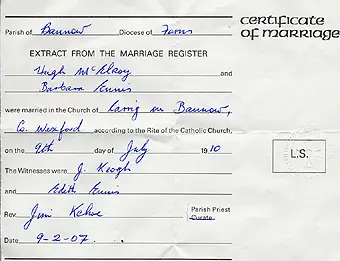 Parish of Bannow Diocese of Ferns
certificate
of marriage
EXTRACT FROM THE MARRIAGE REGISTER
Hugh McElroy and
Barbara Ennis
were married in the Church of Carrig on Bannow,
Co. Wexford according to the Rite of the Catholic Church,
on the 9th day of July 1910
The Witnesses were J. Keogh
and Edith Ennis
Rev. Jim Kehoe Parish Priest
Curate
L.S.
Date 9-2-07.